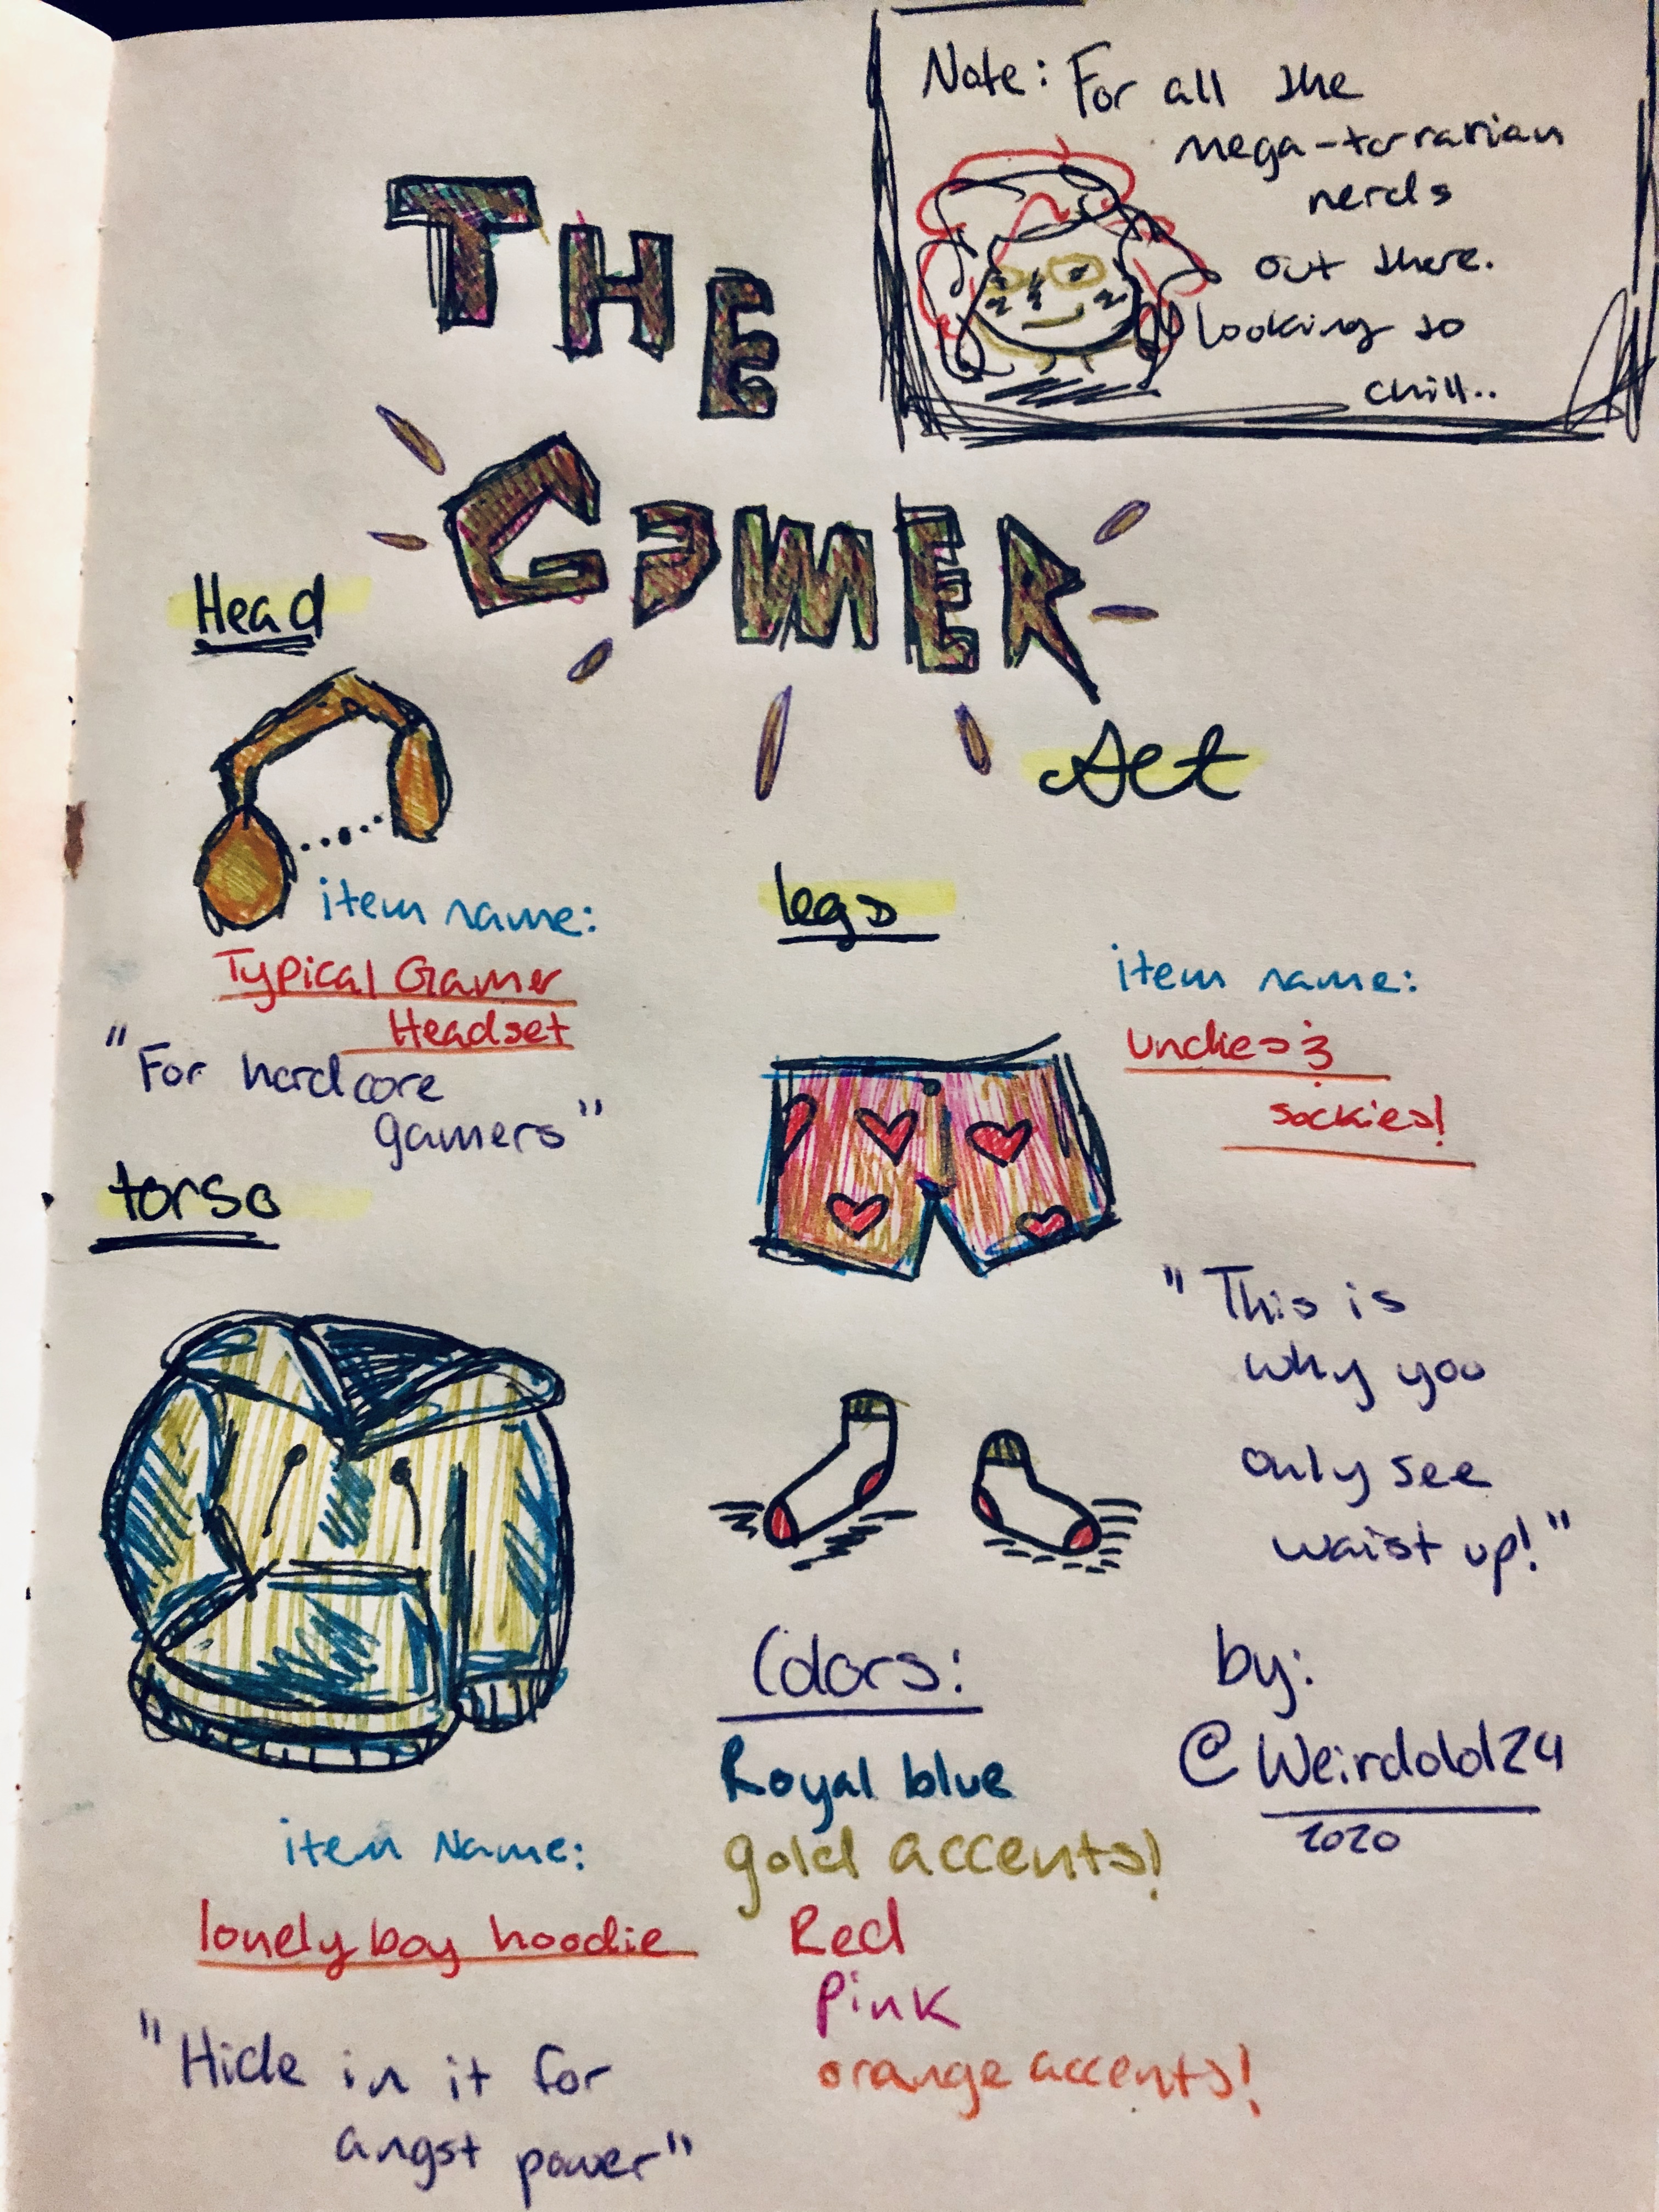 Note: For all the
mega-terrarian
nerds
out there.
looking so
chill..
THE
GAMER
Set
Head
item name:
Typical Gamer
Headset
"For hardcore
gamers"
torso
item Name:
lonely boy hoodie
"Hide in it for
angst power"
legs
item name:
Undies &
sockies!
"This is
why you
only see
waist up!"
Colors:
Royal blue
gold accents!
Red
Pink
orange accents!
by:
2020